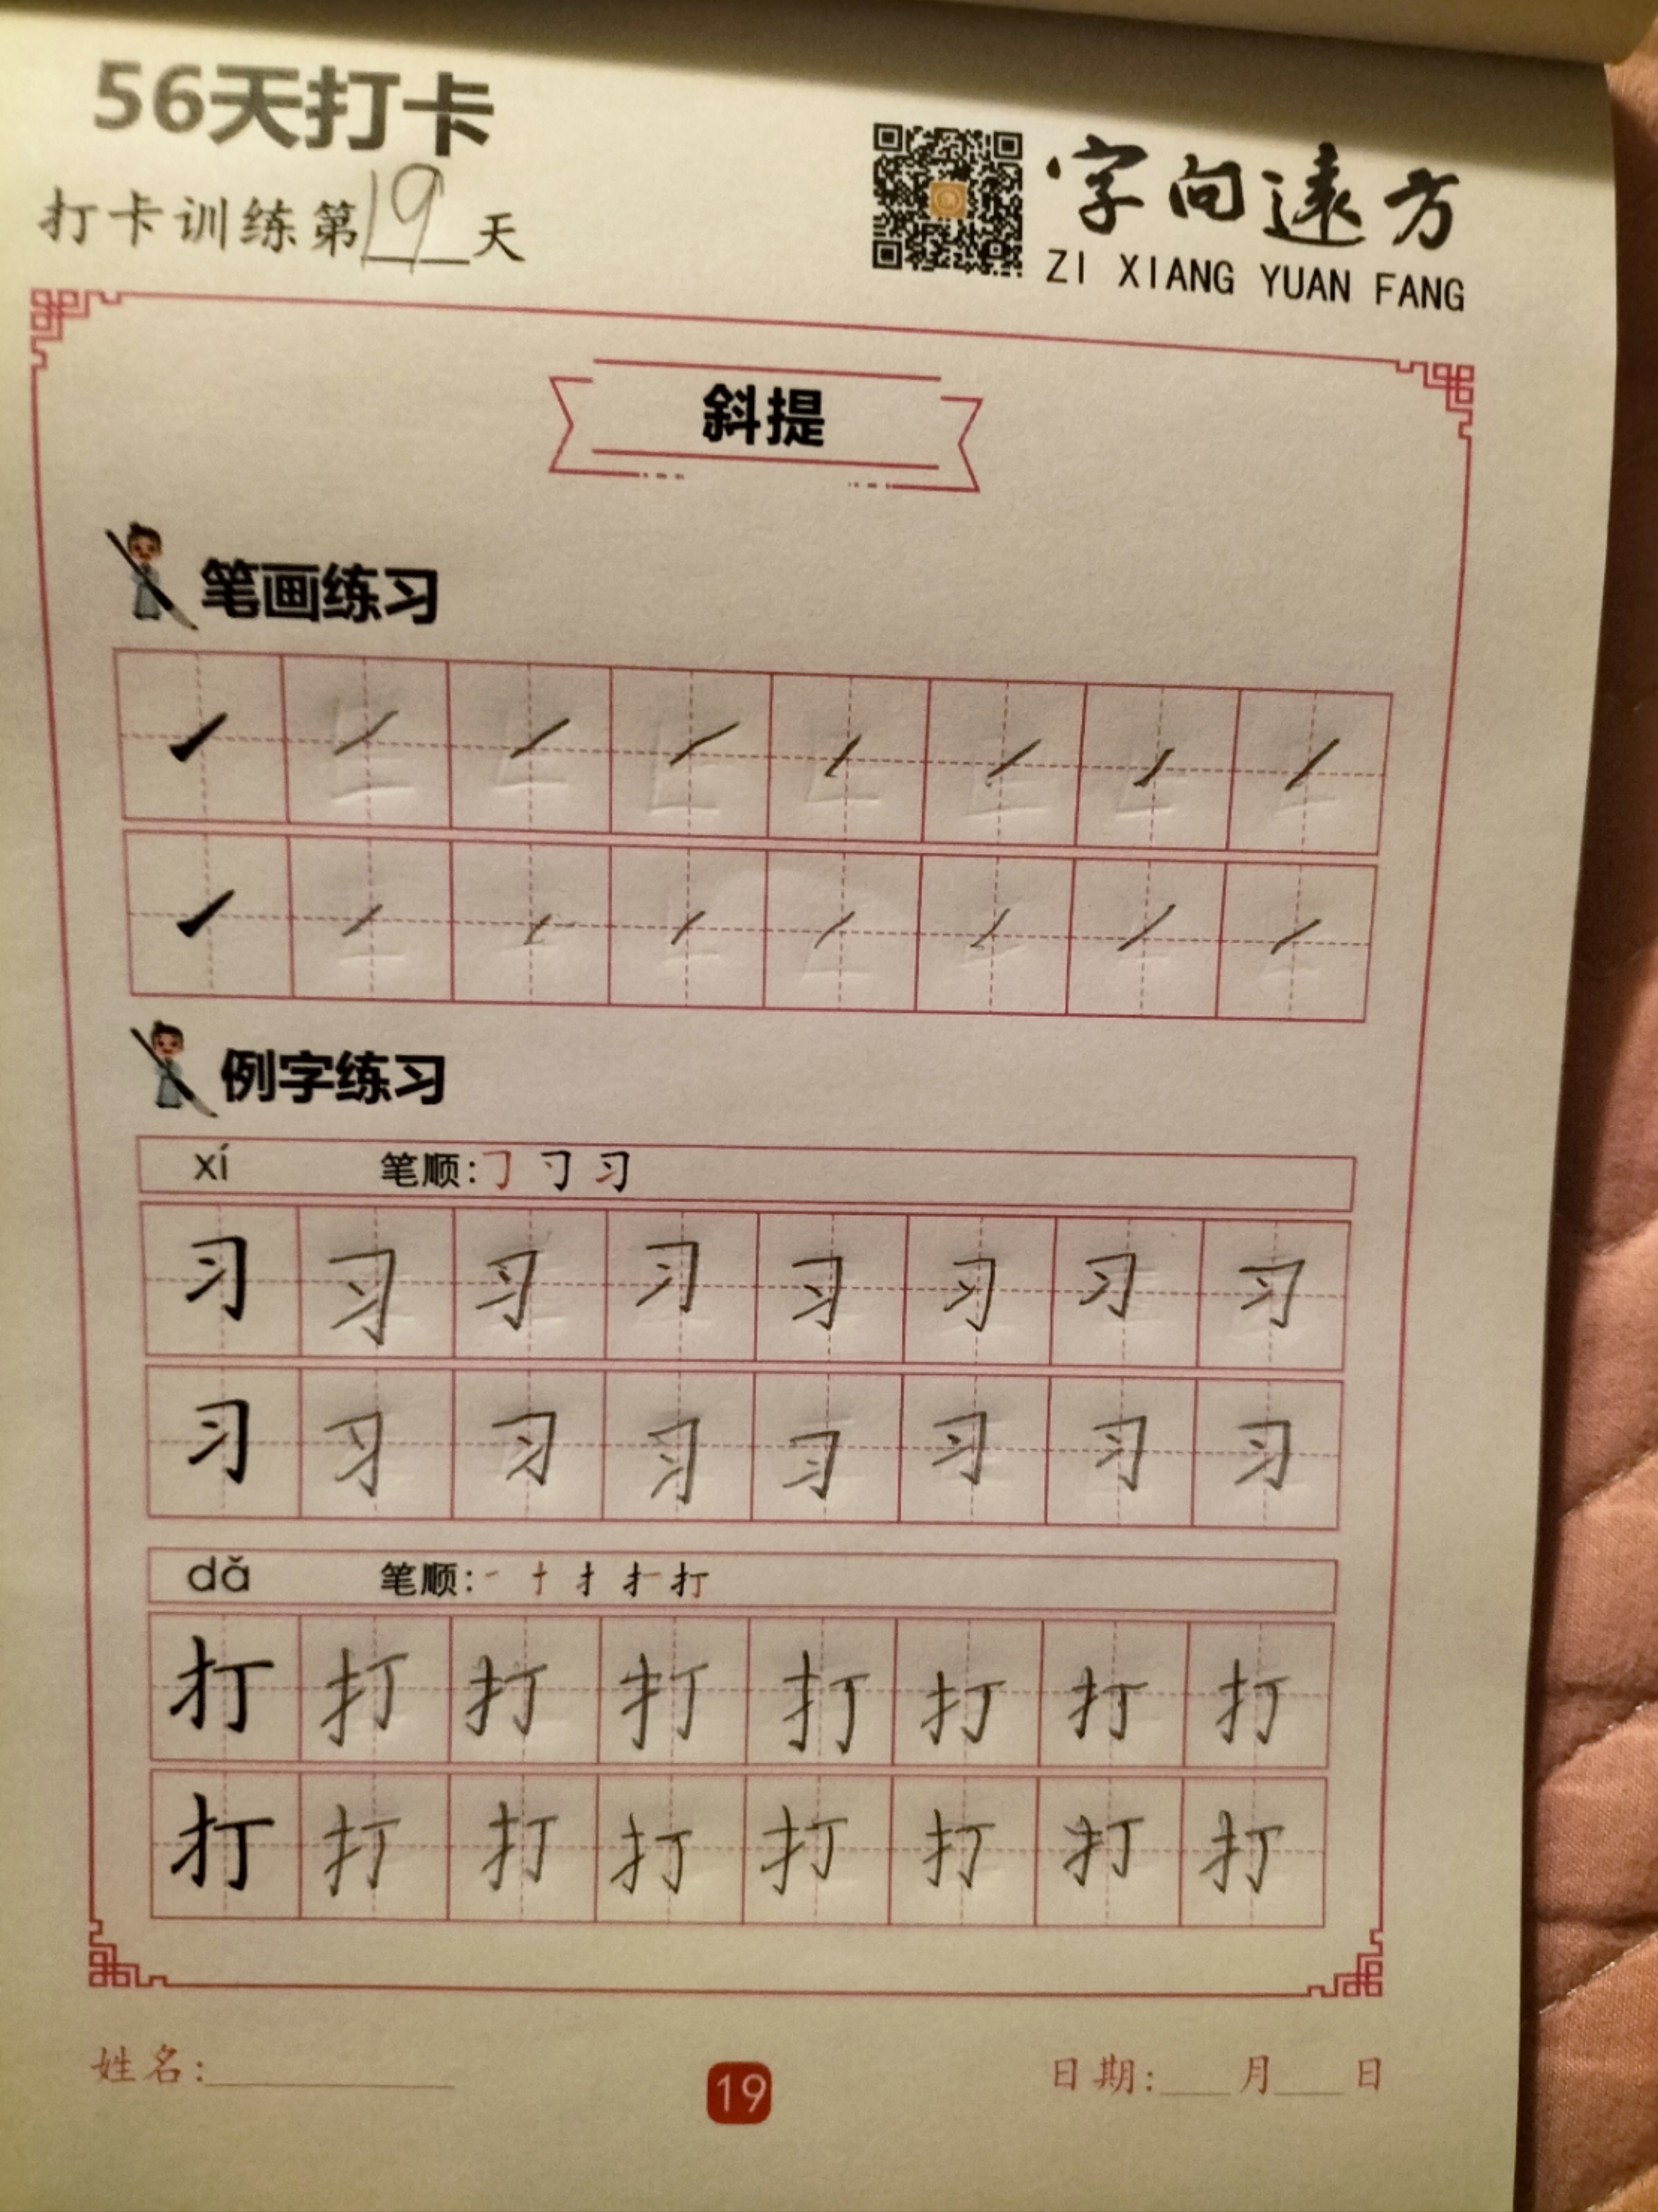 56天打卡
打卡训练第19天
字向遠方
ZI XIANG YUAN FANG
斜提
笔画练习
例字练习
xí 笔顺:㇆ 习
习 习 习 习 习 习 习 习
习 习 习 习 习 习 习 习
dǎ 笔顺:一 十 扌 打
打 打 打 打 打 打 打 打
打 打 打 打 打 打 打 打
姓名:
19
日期: 月 日